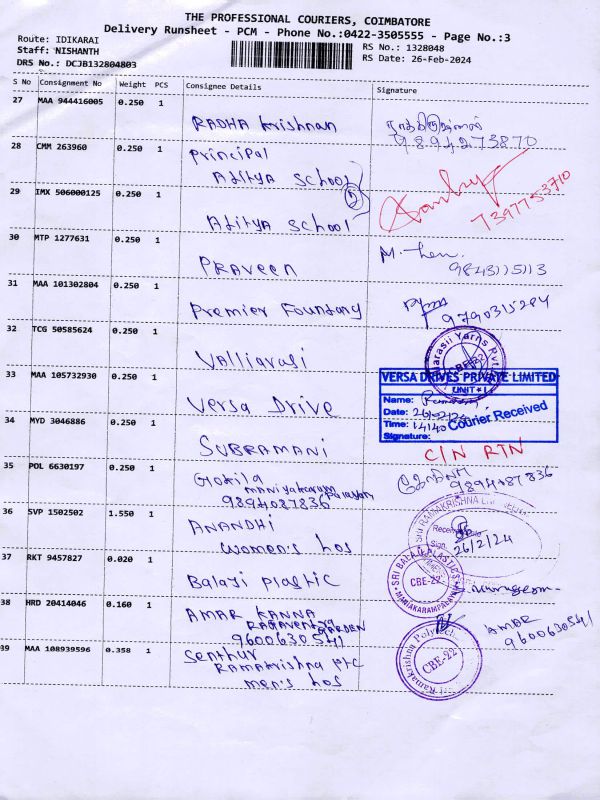 THE PROFESSIONAL COURIERS, COIMBATORE
Delivery Runsheet - PCM - Phone No.:0422-3505555 - Page No.:3
Route: IDIKARAI
RS No.: 1328048
Staff: NISHANTH
RS Date: 26-Feb-2024
DRS No.: DCJB132804803
S No Consignment No Weight PCS Consignee Details Signature
27 MAA 944416005 0.250 1
RADHA Krishnan
9894273870
28 CMM 263960 0.250 1
Principal
Aditya School
29 IMX 506000125 0.250 1
2
7397753710
Aditya School
30 MTP 1277631 0.250 1
PRAVEEN
9843115113
31 MAA 101302804 0.250 1
Premier Foundary
9790315284
32 TCG 50585624 0.250 1
Valliarasi
CBE-22
33 MAA 105732930 0.250 1
Versa Drive
VERSA DRIVES PRIVATE LIMITED
UNIT - I
Name:
Date: 26/02/24
Time: 14:40
Signature:
Courier Received
34 MYD 3046886 0.250 1
SUBRAMANI
C/N RTN
35 POL 6630197 0.250 1
Gokila
Maniyakarampalayam
9894087836
9894087836
36 SVP 1502502 1.550 1
ANANDHI
women's hos
SRI RAMAKRISHNA
26/2/24
37 RKT 9457827 0.020 1
Balaji plastic
SRI BALAJI PLASTICS
CBE-22
MANIAKARAMPALAYAM
38 HRD 20414046 0.160 1
AMAR KANNA
RAGAVENDRA
GARDEN
9600630541
AMAR
9600630541
39 MAA 108939596 0.358 1
Senthur
Ramakrishna ptc
men's hos
Ramakrishna Polytechnic
CBE-22